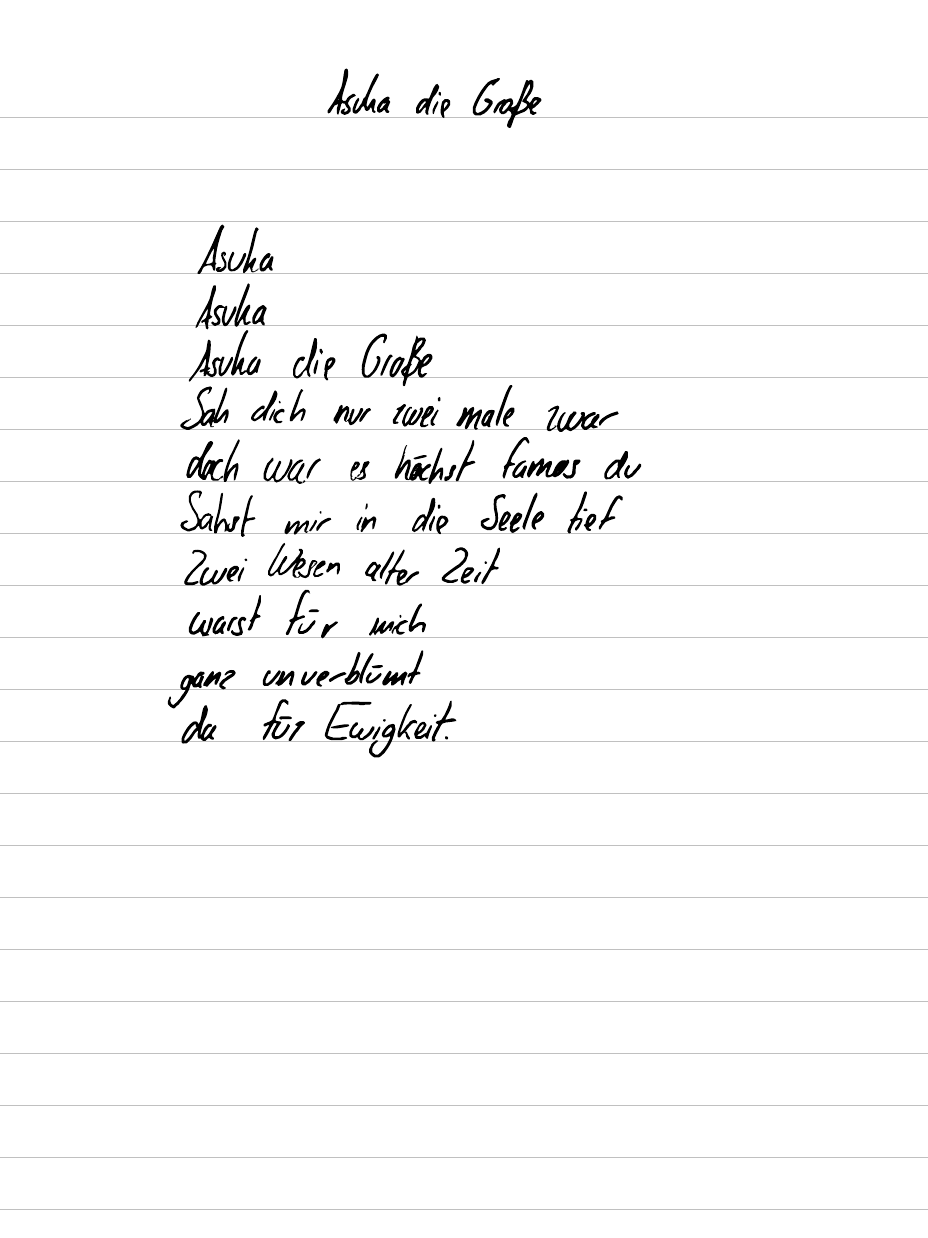 Asuka die Große
Asuka
Asuka
Asuka die Große
Sah dich nur zwei male zwar
doch war es höchst famos du
Sahst mir in die Seele tief
Zwei Wesen alter Zeit
warst für mich
ganz unverblümt
da für Ewigkeit.